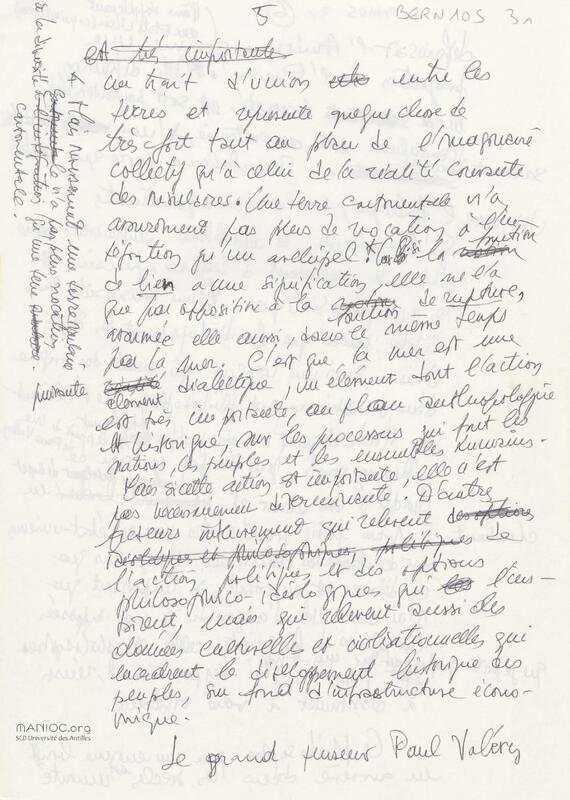 5 BERNIOS 3n
et très importante
un trait d'union entre les
terres et représente quelque chose de
très fort tant au plan de l'imaginaire
collectif qu'à celui de la réalité courante
des insulaires. Une terre continentale n'a
assurément pas plus de vocation à l'in-
tégration qu'un archipel. Car si la fonction
de lien a une signification, elle ne l'a
que par opposition à la fonction de rupture,
assumée elle aussi, dans le même temps
par la mer. C'est que la mer est une
puissante dialectique, un élément dont l'action
élément
est très importante, au plan anthropologique
et historique, sur les processus qui font les
nations, les peuples et les ensembles humains.
Mais si cette action est importante, elle n'est
pas nécessairement déterminante. D'autres
facteurs interviennent qui relèvent des options
idéologiques et philosophiques, politiques de
l'action politique et des options
philosophico-idéologiques qui
mais qui relèvent aussi des
données culturelles et civilisationnelles qui
encadrent le développement historique des
peuples, sur fond d'infrastructure écono-
mique.
Le grand penseur Paul Valéry
+ Mais
une terre insulaire
n'a pas plus vocation
à la diversité qu'une terre
continentale.
MANIOC.org
SCD Université des Antilles